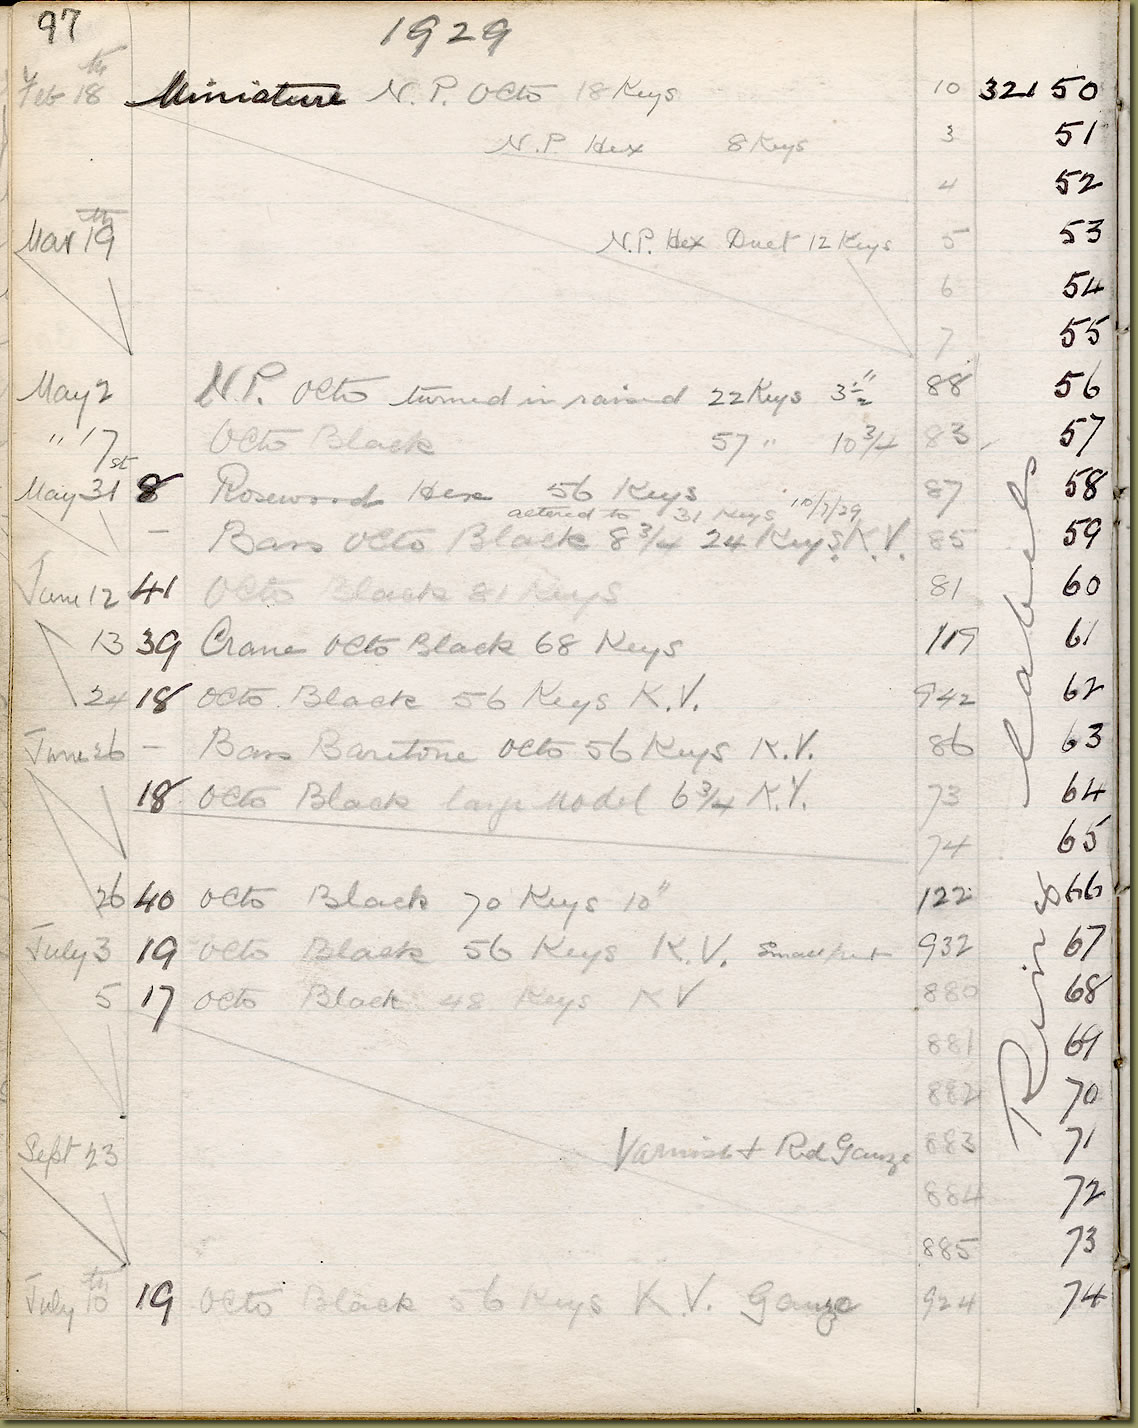 97 1929
Feb 18th Miniature N.P. Octo 18 Keys 10 32150
N.P. Hex 8 Keys 3 51
4 52
Mar 19th N.P. Hex Duet 12 Keys 5 53
6 54
7 55
May 2 N.P. Octo turned in raised 22 Keys 3½" 88 56
" 17 Octo Black 57 " 10 3/4 83 57
May 31st 8 Rosewood Hex 56 Keys 87 58
altered to 31 Keys 10/7/29
– Bass Octo Black 8 3/4 24 Keys K.V. 85 59
June 12 41 Octo Black 81 Keys 81 60
13 39 Crane Octo Black 68 Keys 119 61
24 18 Octo Black 56 Keys K.V. 942 62
June 26 – Bass Baritone Octo 56 Keys K.V. 86 63
18 Octo Black large Model 6 3/4 K.V. 73 64
74 65
26 40 Octo Black 70 Keys 10" 122 66
July 3 19 Octo Black 56 Keys K.V. Small 932 67
5 17 Octo Black 48 Keys KV 880 68
881 69
882 70
Sept 23 Varnish + Red Gauze 883 71
884 72
885 73
July 10th 19 Octo Black 56 Keys K.V. Gauze 924 74